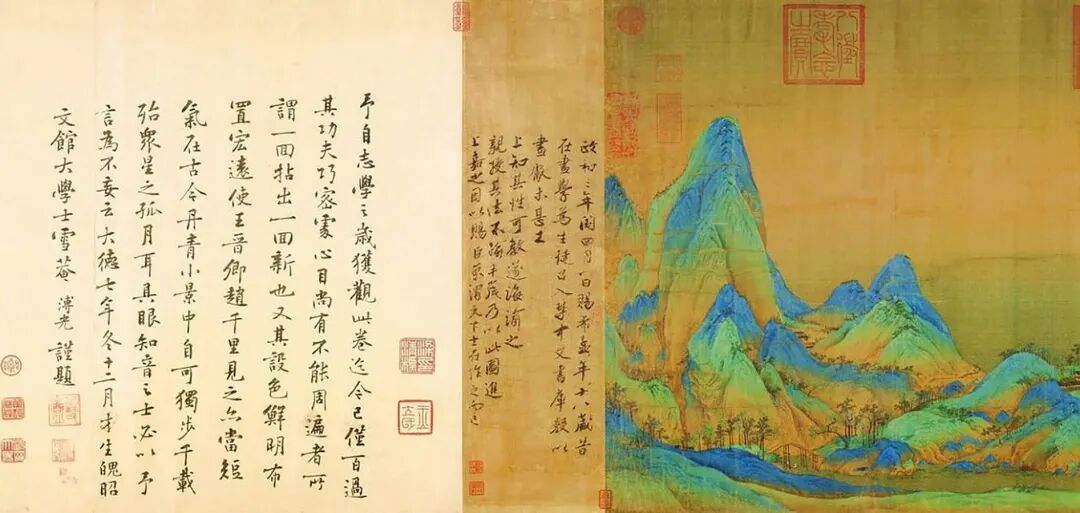 八徵
耄念
之寶
政和三年閏四月一日賜希孟年十八歲昔
在畫學為生徒召入禁中文書庫數以
畫獻未甚工
上知其性可教遂誨諭之
親授其法不踰半歲乃以此圖進
上嘉之因以賜臣京謂天下士在作之而已
予自志學之歲獲觀此卷迄今已僅百過
其功夫巧密處心目尚有不能周遍者所
謂一囬拈出一囬新也又其設色鮮明布
置宏遠使王晉卿趙千里見之亦當短
氣在古今丹青小景中自可獨步千載
殆眾星之孤月耳具眼知音之士必以予
言為不妄云大德七年冬十二月才生魄昭
文館大學士雪菴溥光謹題